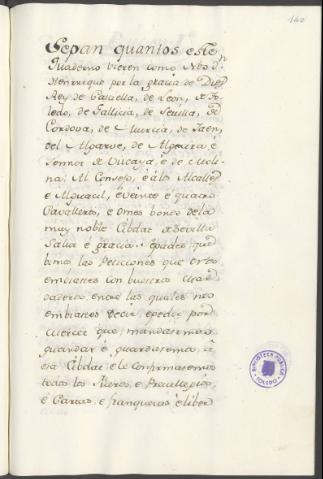 160
Sepan quantos este
Quaderno vieren como Nos dn
Henrrique por la gracia de Dios
Rey de Castiella, de León, de To
ledo, de Gallicia, de Sevilla, de
Cordova, de Murcia, de Jaén,
del Algarve, de Algecira, é
Sennor de Vizcaya, é de Moli-
na: Al Consejo, é á los Alcalles
é Alguacil, é veinte é quatro
Cavalleros, é Omes bonos de la
muy noble Cibdat de Sevilla
Salut é gracia. Sepades que
vimos las Peticiones que
embiastes con vuestros
entre las quales nos
embiastes decir, é pedir por
merced que mandasemos
guardar é guardasemos á
esa Cibdat, é le confirmasemos
todos los Fueros, é Previllegios,
é Cartas, é franquezas, é liber
BIBLIOTECA PUBLICA
TOLEDO